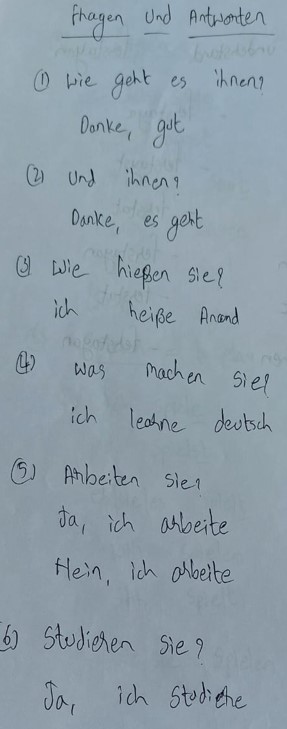 Fragen und Antworten
(1) Wie geht es ihnen?
Danke, gut
(2) Und ihnen?
Danke, es geht
(3) Wie hießen sie?
ich heiße Anand
(4) Was machen sie?
ich learne deutsch
(5) Arbeiten sie?
Ja, ich arbeite
Nein, ich arbeite
(6) Studieren sie?
Ja, ich studiere